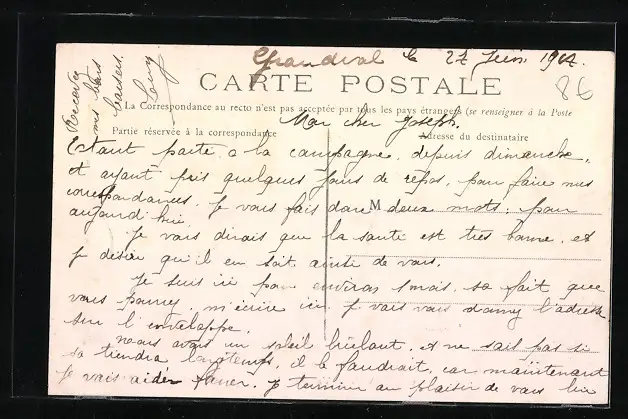 Grandval le 27 Juin 1904
86
CARTE POSTALE
La Correspondance au recto n'est pas acceptée par tous les pays étrangers (se renseigner à la Poste
Mon cher Joseph.
Partie réservée à la correspondance
Adresse du destinataire
Etant partie a la campagne, depuis dimanche,
et ayant pris quelques jours de repos, pour faire mes
correspondances. Je vous fais donc deux mots, pour
M
aujourd hui
Je vous dirais que la santé est très bonne, et
je désire qu'il en soit ainsi de vous.
Je suis ici pour environ 1 mois, sa fait que
vous pourrez m'écrire ici, je vais vous donner l'adresse
sur l'enveloppe.
nous avons un soleil brûlant, et ne sait pas si
sa tiendra longtemps, il le faudrait, car maintenant
je vais aider faner. Je termine au plaisir de vous lire
Recevez
mes bons
baisers.